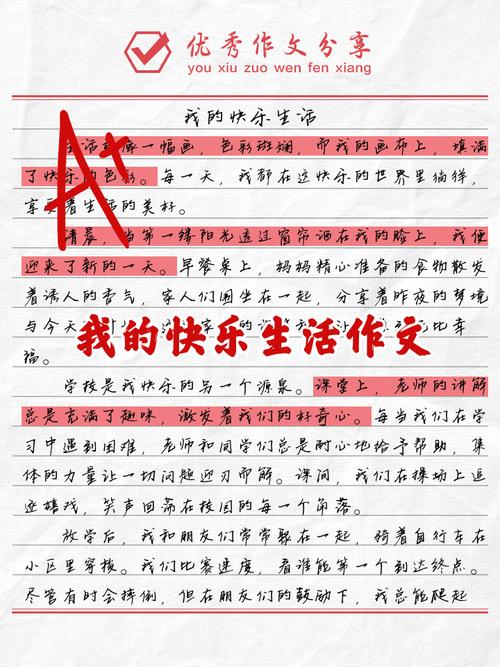 优秀作文分享
you xiu zuo wen fen xiang
我的快乐生活
A+
生活就像一幅画，色彩斑斓，而我的画布上，填满
了快乐的色彩。每一天，我都在这快乐的世界里徜徉，
享受着生活的美好。
清晨，当第一缕阳光透过窗帘洒在我的脸上，我便
迎来了新的一天。早餐桌上，妈妈精心准备的食物散发
着诱人的香气，家人们围坐在一起，分享着昨夜的梦境
与今天
比幸
福。
我的快乐生活作文
学校是我快乐的另一个源泉。课堂上，老师的讲解
总是充满了趣味，激发着我们的好奇心。每当我们在学
习中遇到困难，老师和同学们总是耐心地给予帮助，集
体的力量让一切问题迎刃而解。课间，我们在操场上追
逐嬉戏，笑声回荡在校园的每一个角落。
放学后，我和朋友们常常聚在一起，骑着自行车在
小区里穿梭。我们比赛速度，看谁能第一个到达终点。
尽管有时会摔倒，但在朋友们的鼓励下，我总能爬起